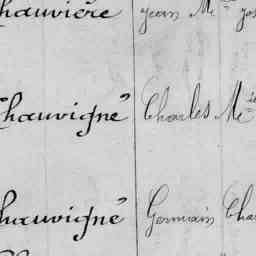 Chauvière Jean Mie Jos
Chauvigné Charles Mie
Chauvigné Germain Cha